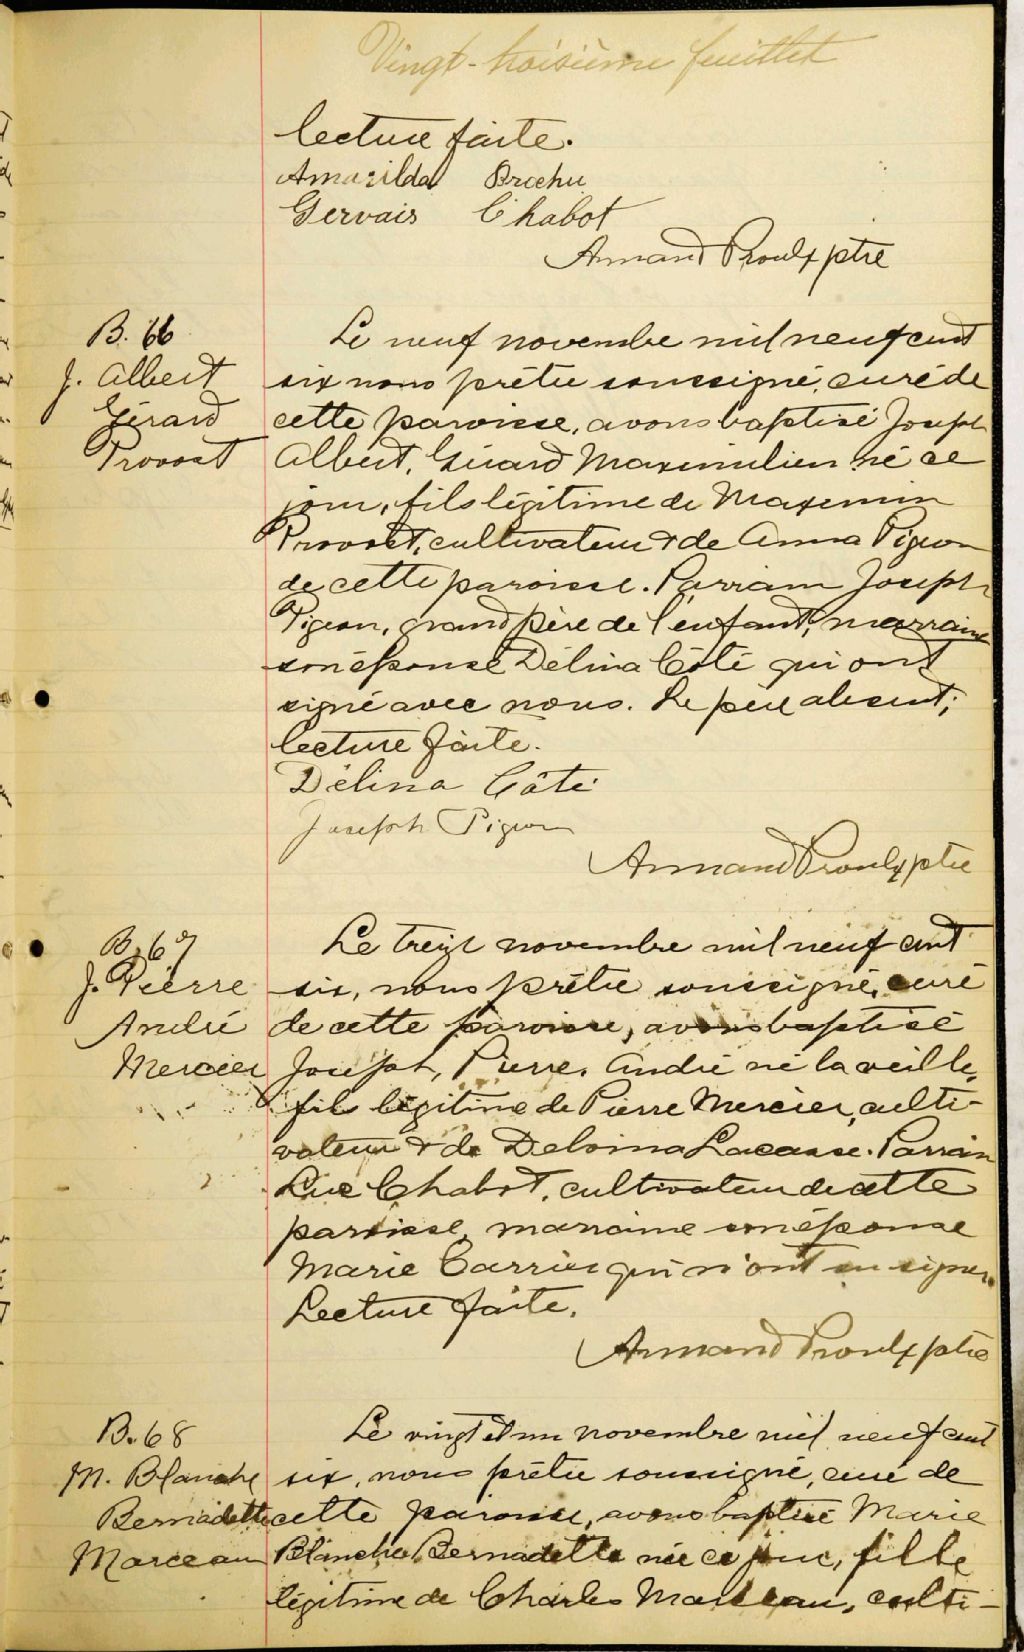 Vingt-troisième feuillet
lecture faite.
Amarilda Brochu
Gervais Chabot
Armand Proulx ptre
B. 66
J. Albert
Gérard
Provost
Le neuf novembre mil neuf cent
six nous prêtre soussigné, curé de
cette paroisse, avons baptisé Joseph
Albert, Gérard Maximilien né ce
jour, fils légitime de Maxemin
Provost, cultivateur & de Anna Pigeon
de cette paroisse. Parrain Joseph
Pigeon, grand père de l'enfant, marraine
son épouse Délina Côté qui ont
signé avec nous. Le père absent;
lecture faite.
Délina Côté
Joseph Pigeon
Armand Proulx ptre
B. 67
J. Pierre
André
Mercier
Le treize novembre mil neuf cent
six, nous prêtre soussigné, curé
de cette paroisse, avons baptisé
Joseph, Pierre, André né la veille,
fils légitime de Pierre Mercier, culti-
vateur & de Delvina Lacasse. Parrain
Luc Chabot, cultivateur de cette
paroisse, marraine son épouse
Marie Carrier qui n'ont su signer.
Lecture faite.
Armand Proulx ptre
B. 68
M. Blanche
Bernadette
Marceau
Le vingt et un novembre mil neuf cent
six, nous prêtre soussigné, curé de
cette paroisse, avons baptisé Marie
Blanche Bernadette née ce jour, fille
légitime de Charles Marceau, culti-